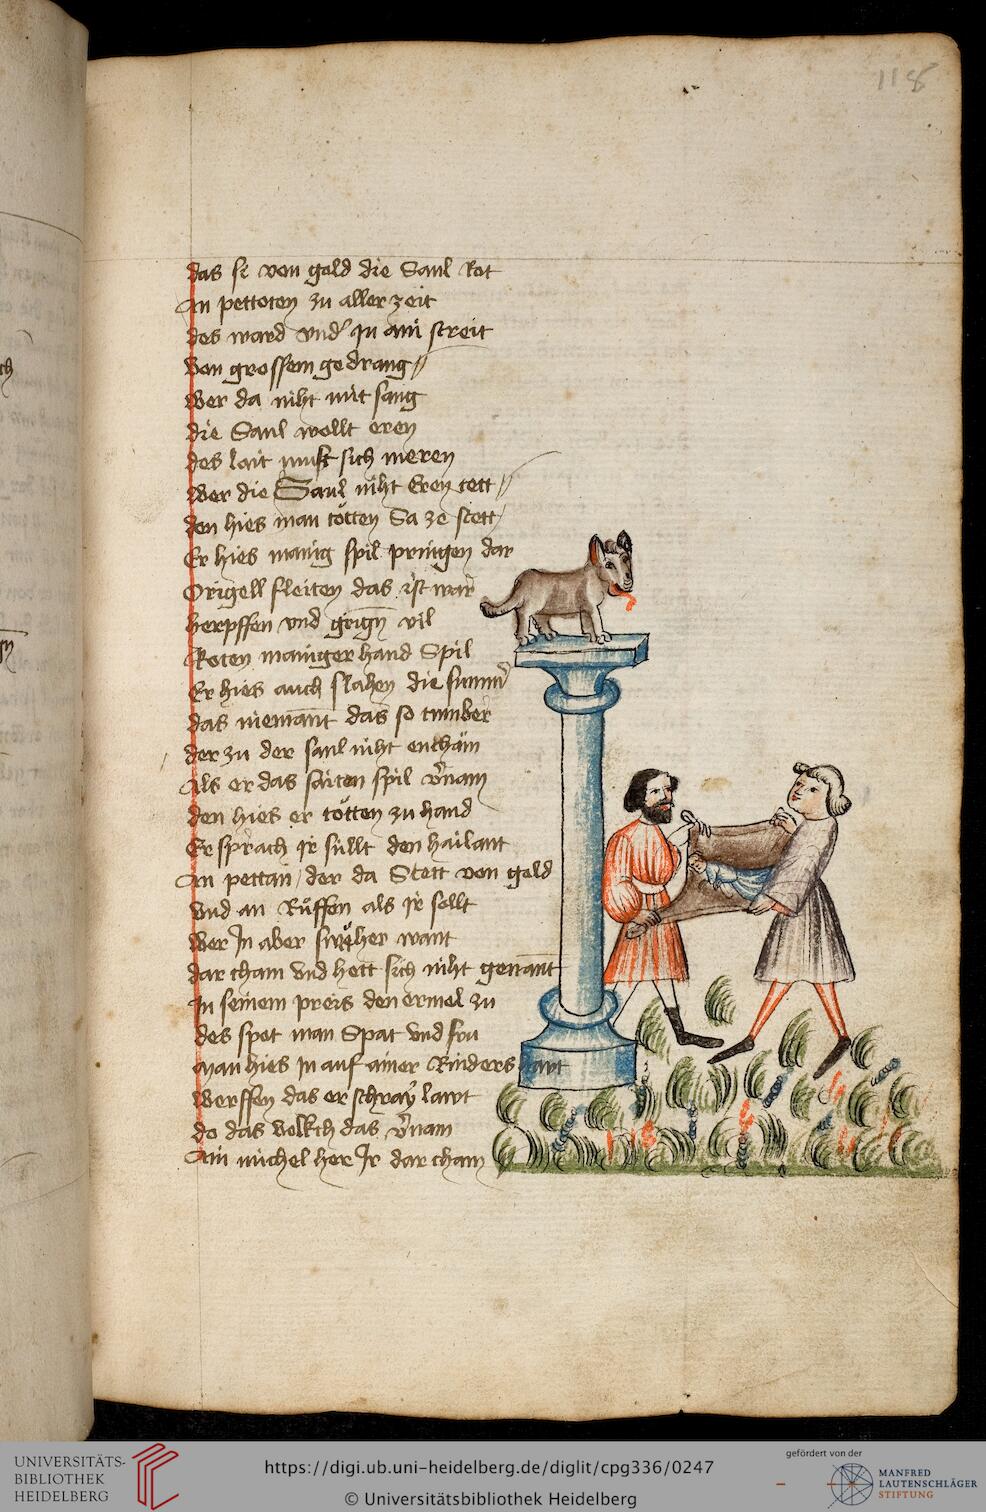 118
das si von gold die Saul Rot
An pettoten zu aller zeit
des ward vnd' In aim streit
Von grossem gedrang
wer da niht mit sang
die Saul wollt eren
des lait must sich meren
wer die Saul niht Eren tett
den hies man tötten Sa ze stett
Er hies manig spil pringen dar
Origell fleiten das ist war
herpffen vnd vil
Roten maniger hand Spil
Er hies auch slahen die
das niemant das so tumber
der zu der saul niht
Als er das saiten spil
den hies er tötten zu hand
Er sprach ir süllt den hailant
An pettan / der da Stett von gold
vnd an Rüffen als ir sollt
wer In aber want
dar cham vnd hett sich niht genant
In seinem preis den ermel zu
des spot man Spat vnd fru
man hies In auf ainer Rinders hawt
werffen das er schray lawt
do das volkch das
Ain michel her Ir dar cham
UNIVERSITÄTS-
BIBLIOTHEK
HEIDELBERG
https://digi.ub.uni-heidelberg.de/diglit/cpg336/0247
© Universitätsbibliothek Heidelberg
gefördert von der
MANFRED
LAUTENSCHLÄGER
STIFTUNG